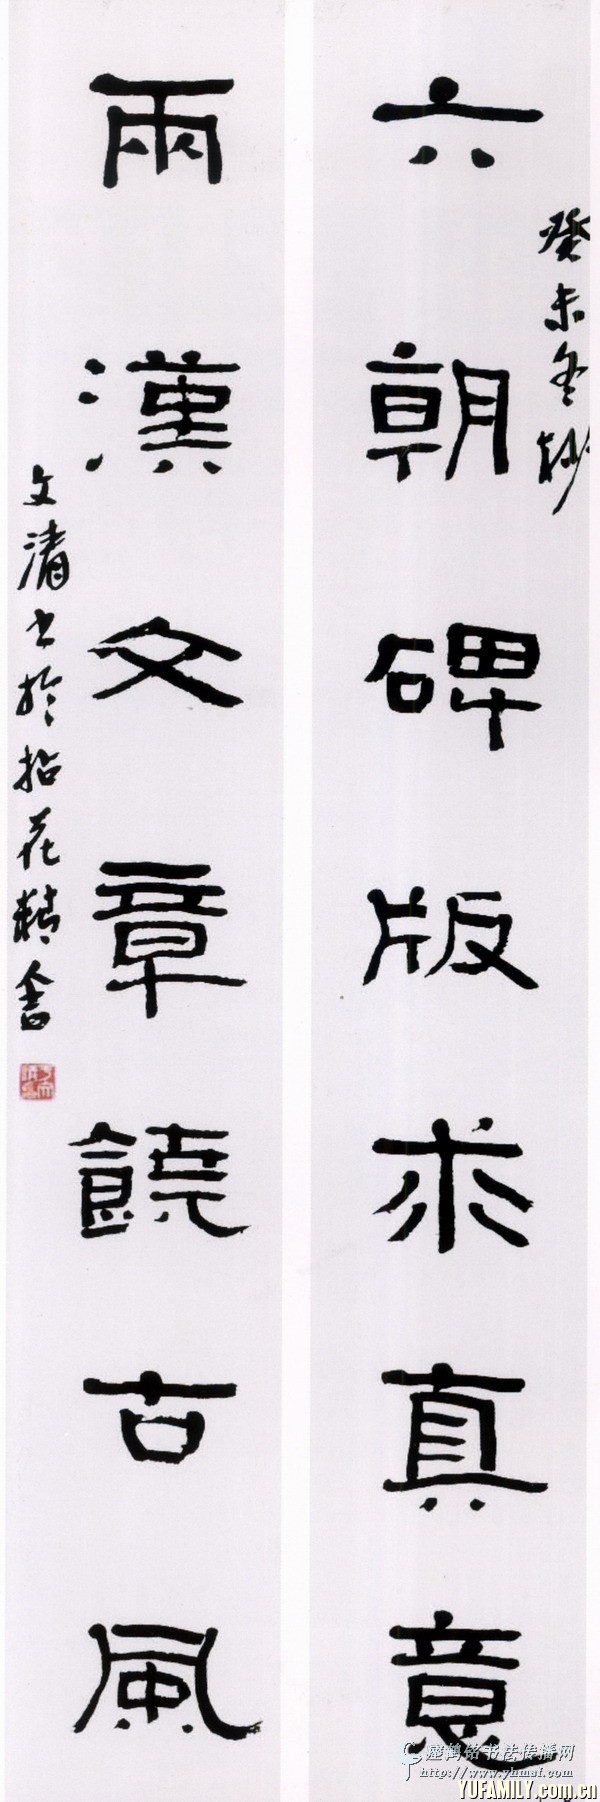 六朝碑版求真意
癸未冬抄
兩漢文章饒古風
文清書於拈花精舍
瘞鶴铭书法传播网
http://www.yhmsf.com
YUFAMILY.com.cn